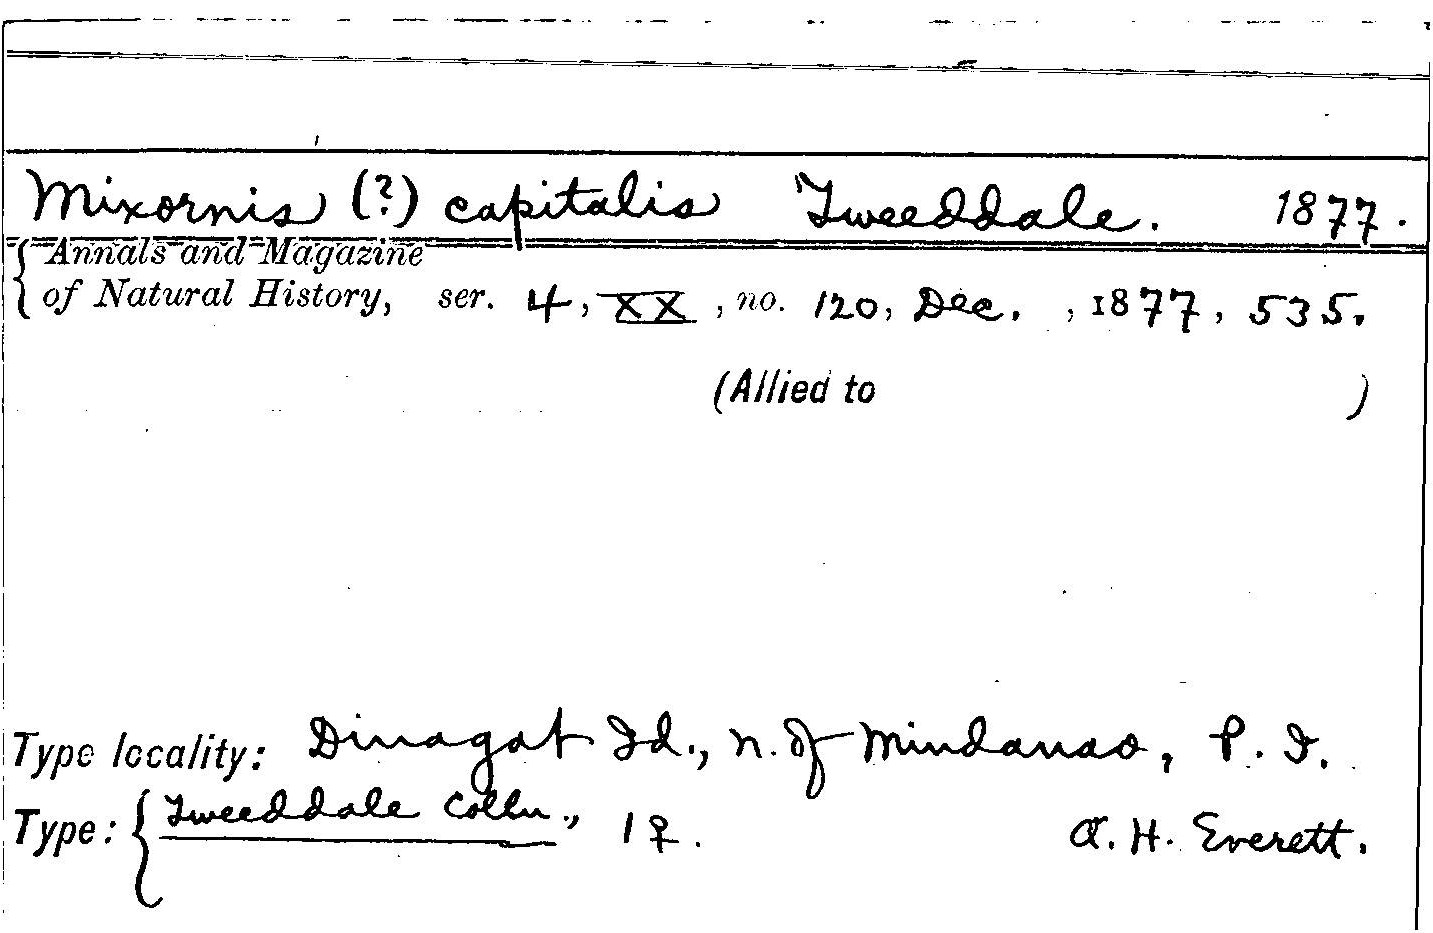 Mixornis (?) capitalis Tweeddale. 1877.
Annals and Magazine
of Natural History, ser. 4, XX, no. 120, Dec. , 1877, 535.
(Allied to )
Type locality: Dinagat Id., n. of Mindanao, P. I.
Type: { Tweeddale Colln., 1 ♀. A. H. Everett.